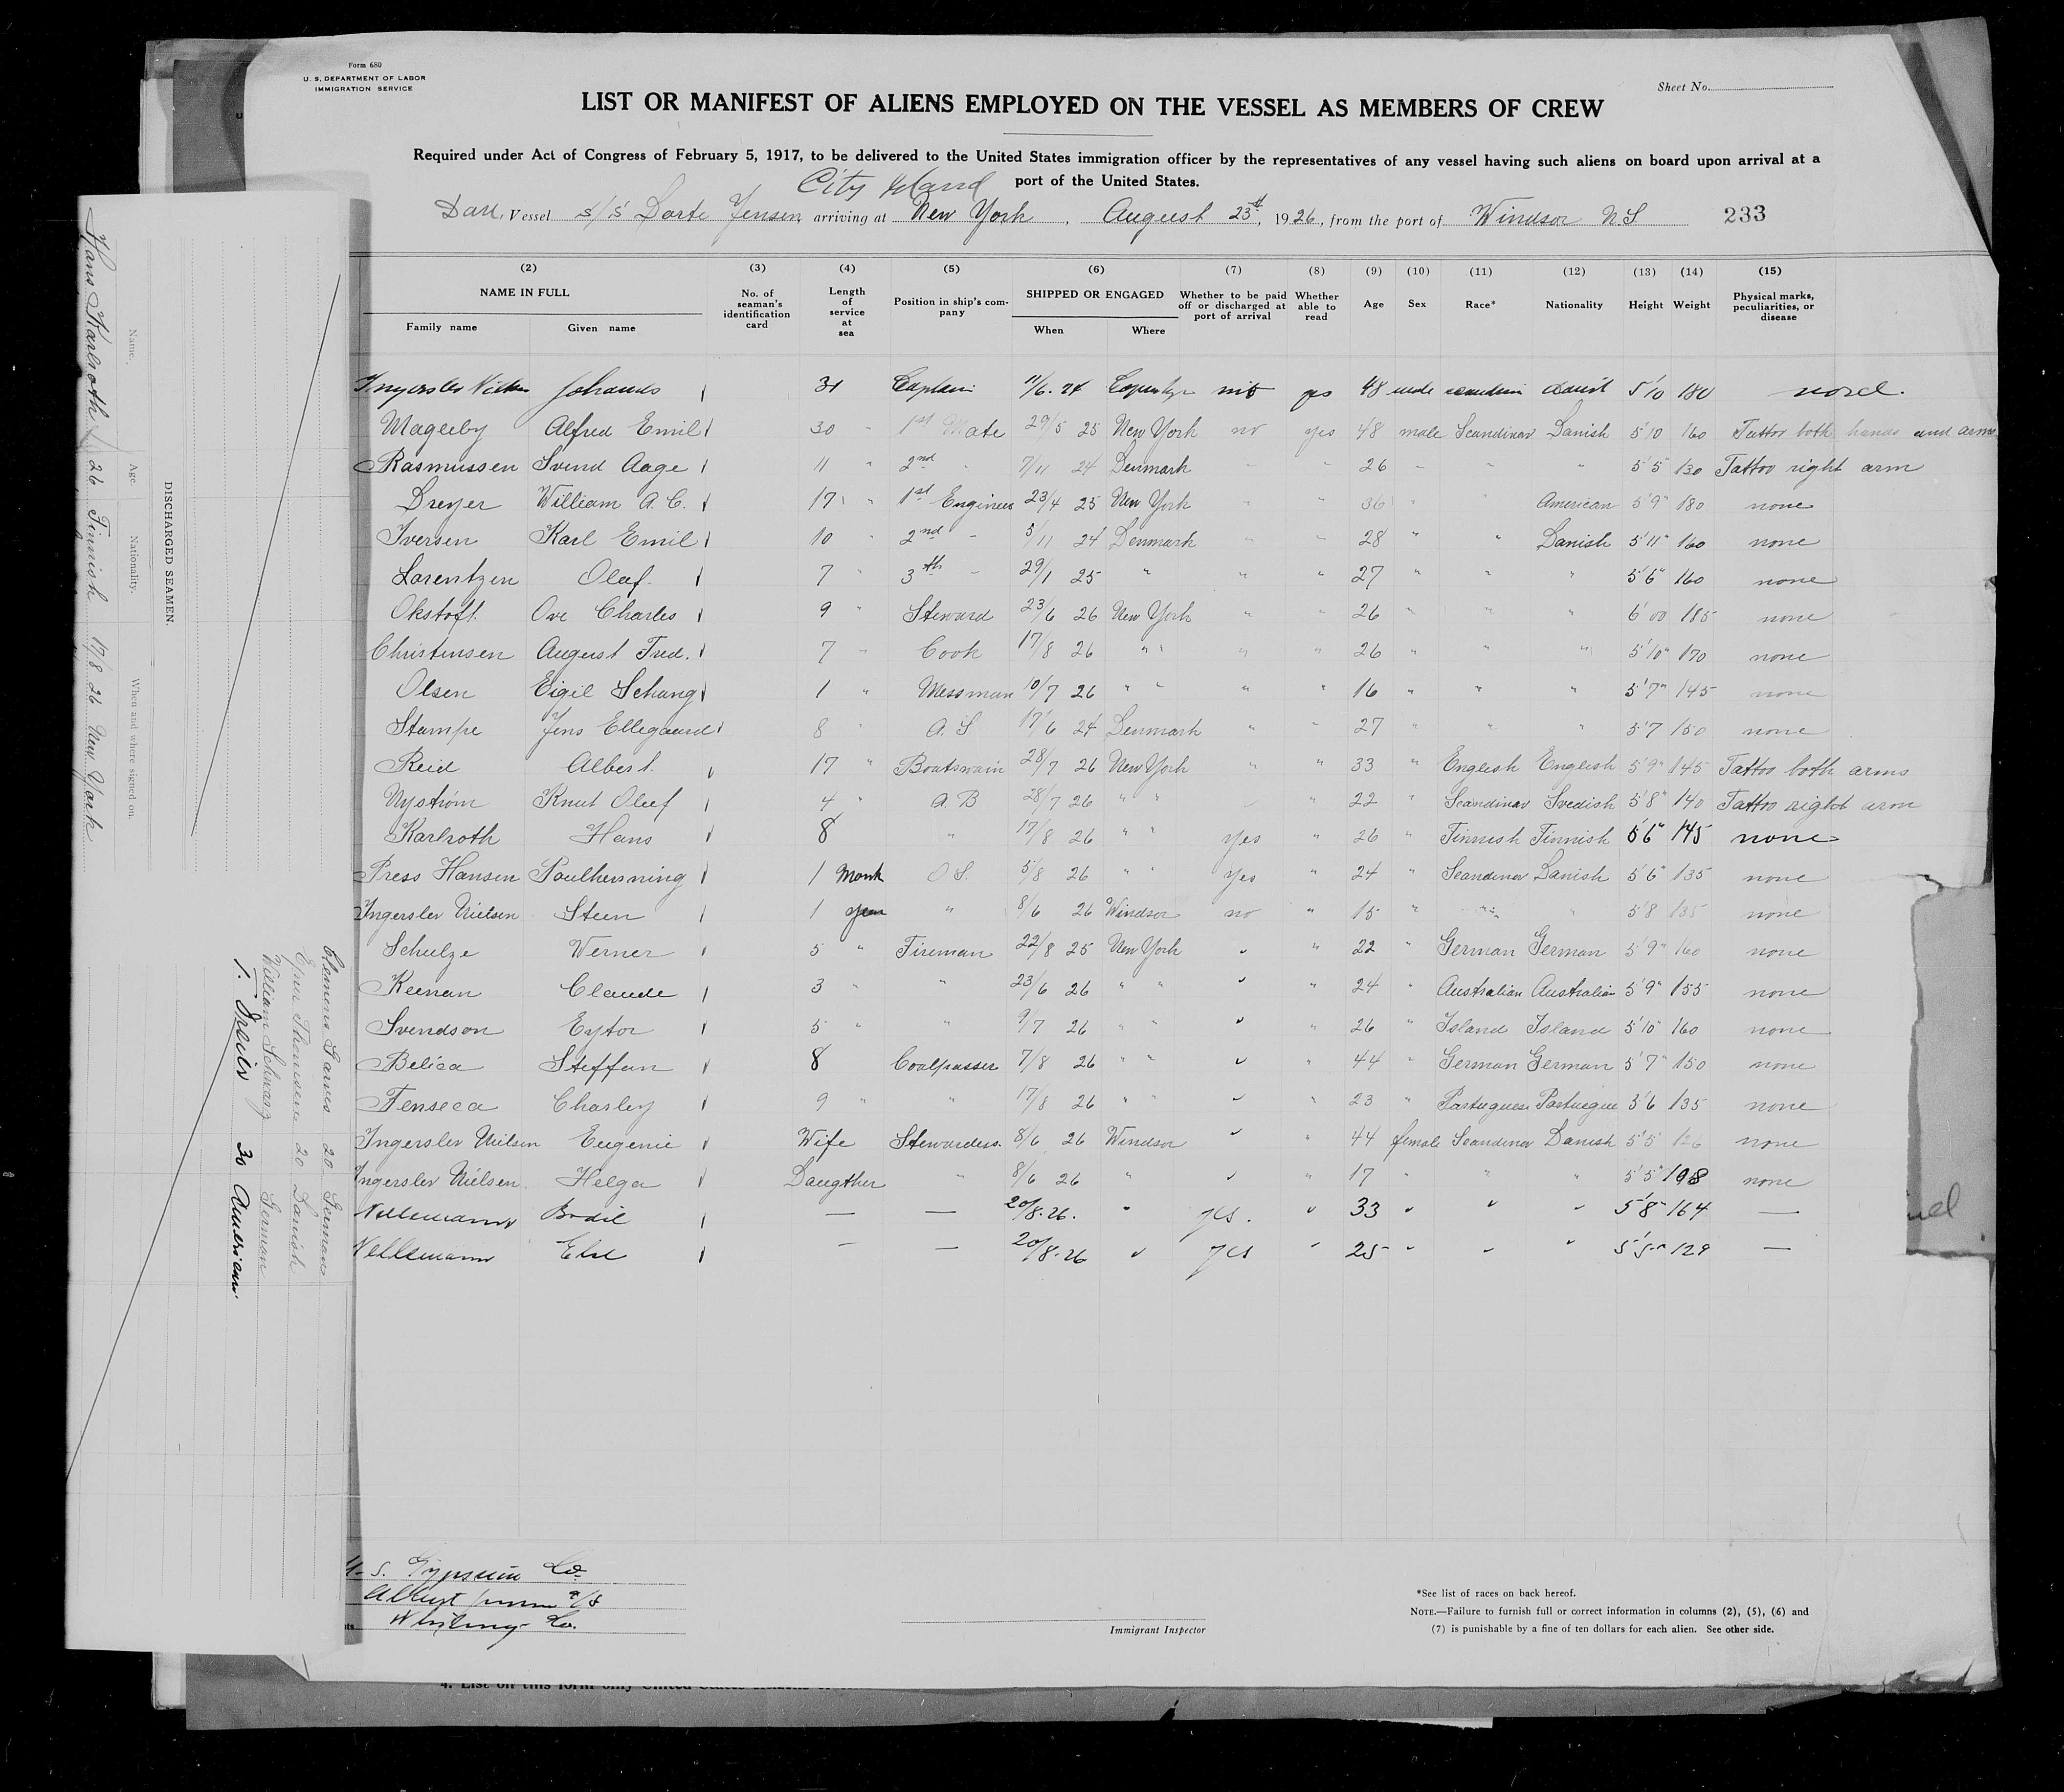 Form 680
U. S. DEPARTMENT OF LABOR
IMMIGRATION SERVICE
Sheet No.
LIST OR MANIFEST OF ALIENS EMPLOYED ON THE VESSEL AS MEMBERS OF CREW
Required under Act of Congress of February 5, 1917, to be delivered to the United States immigration officer by the representatives of any vessel having such aliens on board upon arrival at a
port of the United States.
City Island
Dan. Vessel s/s Dorte Jensen arriving at New York, August 23rd, 1926, from the port of Windsor N.S 233
(2) (3) (4) (5) (6) (7) (8) (9) (10) (11) (12) (13) (14) (15)
NAME IN FULL No. of seaman's identification card Length of service at sea Position in ship's company SHIPPED OR ENGAGED Whether to be paid off or discharged at port of arrival Whether able to read Age Sex Race* Nationality Height Weight Physical marks, peculiarities, or disease
Family name Given name When Where
Johannes 31 Captain 11/6. 24 yes 48 male 5'10 180
Mageeby Alfred Emil 30 " 1st Mate 29/5 25 New York no yes 48 male Scandinav Danish 5'10 160 Tattoo both hands and arms
Rasmussen Svend Aage 11 " 2nd " 7/11 24 Denmark " " 26 " " " 5'5" 130 Tattoo right arm
Dreyer William A. C. 17 " 1st Engineer 23/4 25 New York " " 36 " " American 5'9" 180 none
Iversen Karl Emil 10 " 2nd " 5/11 24 Denmark " " 28 " " Danish 5'11" 160 none
Lorentzen Olaf. 7 " 3th " 29/1 25 " " " 27 " " " 5'6" 160 none
Okstoft Ove Charles 9 " Steward 23/6 26 New York " " 26 " " " 6'00 185 none
Christensen August Fred. 7 " Cook 17/8 26 " " " " 26 " " " 5'10" 170 none
Olsen Eigil Schang 1 " Messman 10/7 26 " " " " 16 " " " 5'7" 145 none
Stampe Jens Ellegaard 8 " A. S 17/6 24 Denmark " " 27 " " " 5'7 150 none
Reid Albert 17 " Boatswain 28/7 26 New York " " 33 " English English 5'9" 145 Tattoo both arms
Nyström Knut Olof 4 " A. B 28/7 26 " " " " 22 " Scandinav Svedish 5'8" 140 Tattoo right arm
Karlroth Hans 8 " 17/8 26 " " yes " 26 " Finnish Finnish 5'6" 145 none
Press Hansen Poulhenning 1 Month O S. 5/8 26 " " yes " 24 " Scandinav Danish 5'6" 135 none
Ingerslev Nielsen Steen 1 year " 8/6 26 Windsor no " 15 " " " 5'8 135 none
Schulze Werner 5 " Fireman 22/8 25 New York " " 22 " German German 5'9" 160 none
Keenan Claude 3 " " 23/6 26 " " " " 24 " Australian Australian 5'9" 155 none
Svendson Eytor 5 " " 9/7 26 " " " " 26 " Island Island 5'10" 160 none
Belica Steffan 8 Coalpasser 7/8 26 " " " " 44 " German German 5'7" 150 none
Fenseca Charley 9 " " 17/8 26 " " " " 23 " Portuguese Portuegue 5'6 135 none
Ingerslev Nielsen Eugenie Wife Stewardess 8/6 26 Windsor " " 44 female Scandinav Danish 5'5" 126 none
Ingerslev Nielsen Helga Daugther " 8/6 26 " " " 17 " " " 5'5" 198 none
Nellemann Bodil — — 20/8.26. " yes. " 33 " " " 5'8" 164 —
Nellemann Else — — 20/8.26 " yes " 25 " " " 5'5" 129 —
U. S. Gypsum Co.
Co.
Immigrant Inspector
*See list of races on back hereof.
NOTE.—Failure to furnish full or correct information in columns (2), (5), (6) and
(7) is punishable by a fine of ten dollars for each alien. See other side.
DISCHARGED SEAMEN.
Name. Age. Nationality. When and where signed on.
Hans Karlroth 26 Finnish 17/8 26 New York
Clemens 20 German
Thomsen 20 Danish
William Schwarz German
30 American